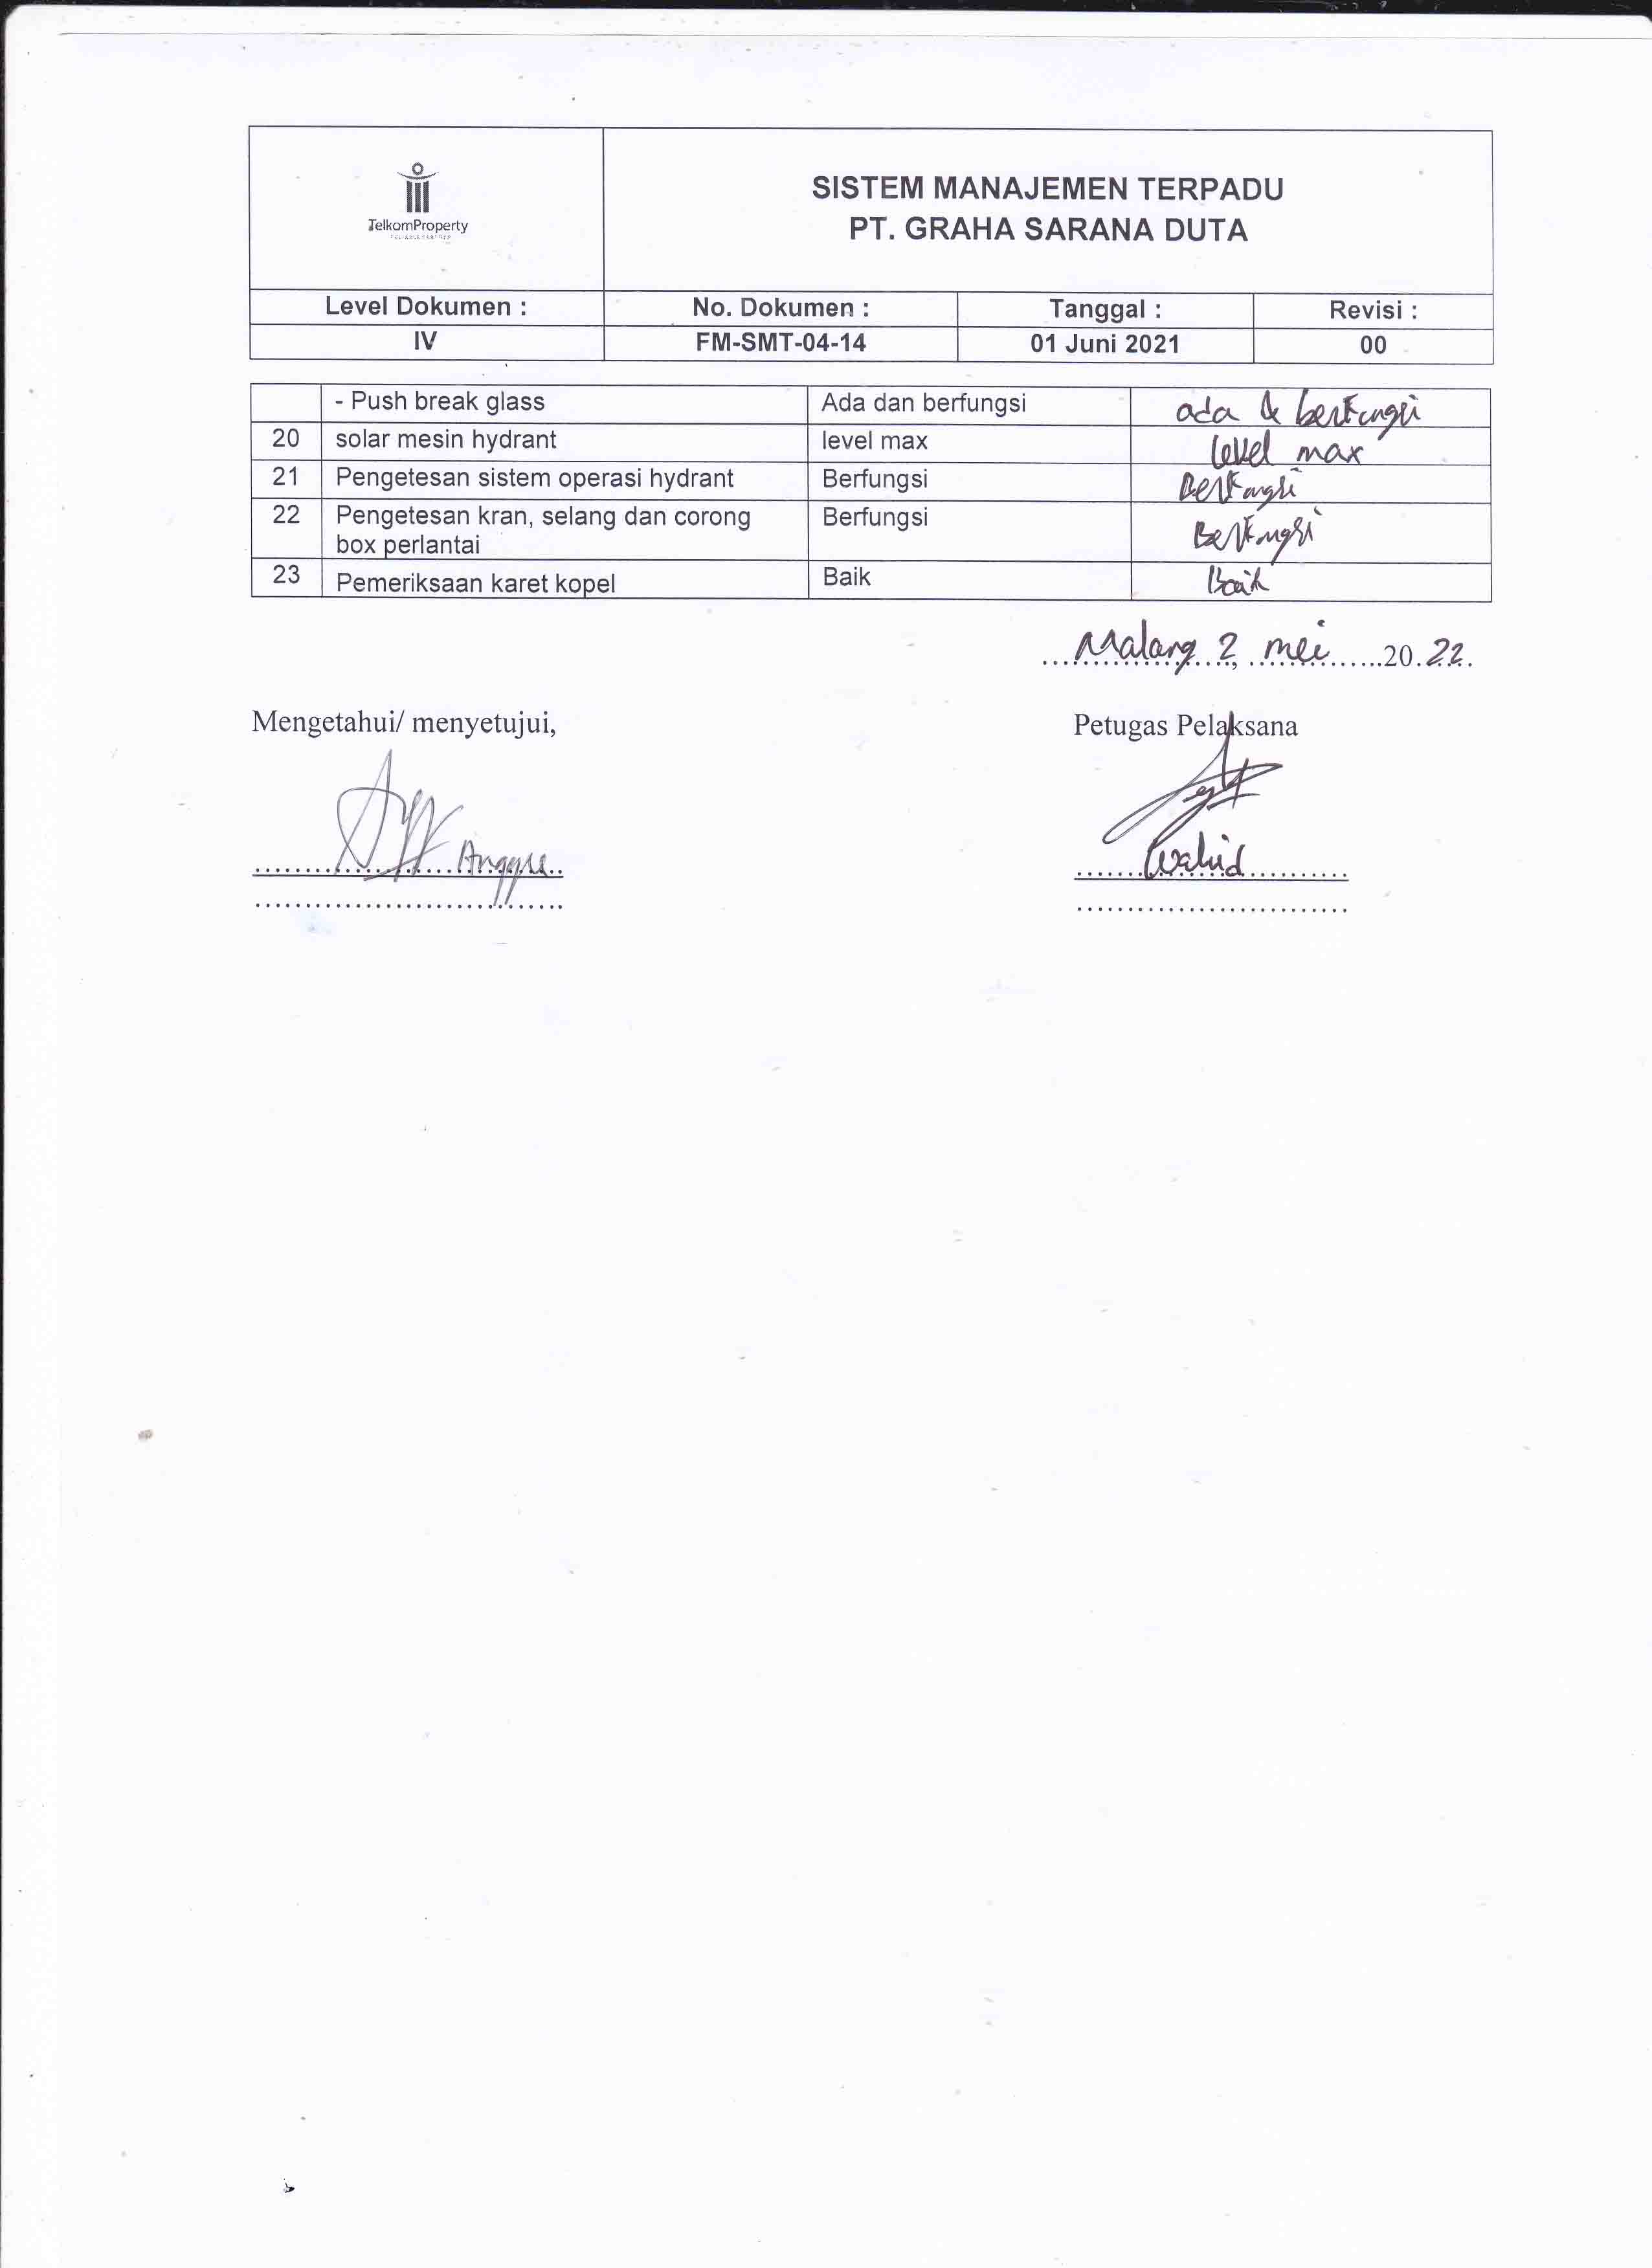 TelkomProperty
SISTEM MANAJEMEN TERPADU
PT. GRAHA SARANA DUTA
Level Dokumen : No. Dokumen : Tanggal : Revisi :
IV FM-SMT-04-14 01 Juni 2021 00
- Push break glass Ada dan berfungsi ada & berfungsi
20 solar mesin hydrant level max level max
21 Pengetesan sistem operasi hydrant Berfungsi Berfungsi
22 Pengetesan kran, selang dan corong Berfungsi Berfungsi
box perlantai
23 Pemeriksaan karet kopel Baik Baik
Malang, 2 mei 20.22.
Mengetahui/ menyetujui, Petugas Pelaksana
Wahid